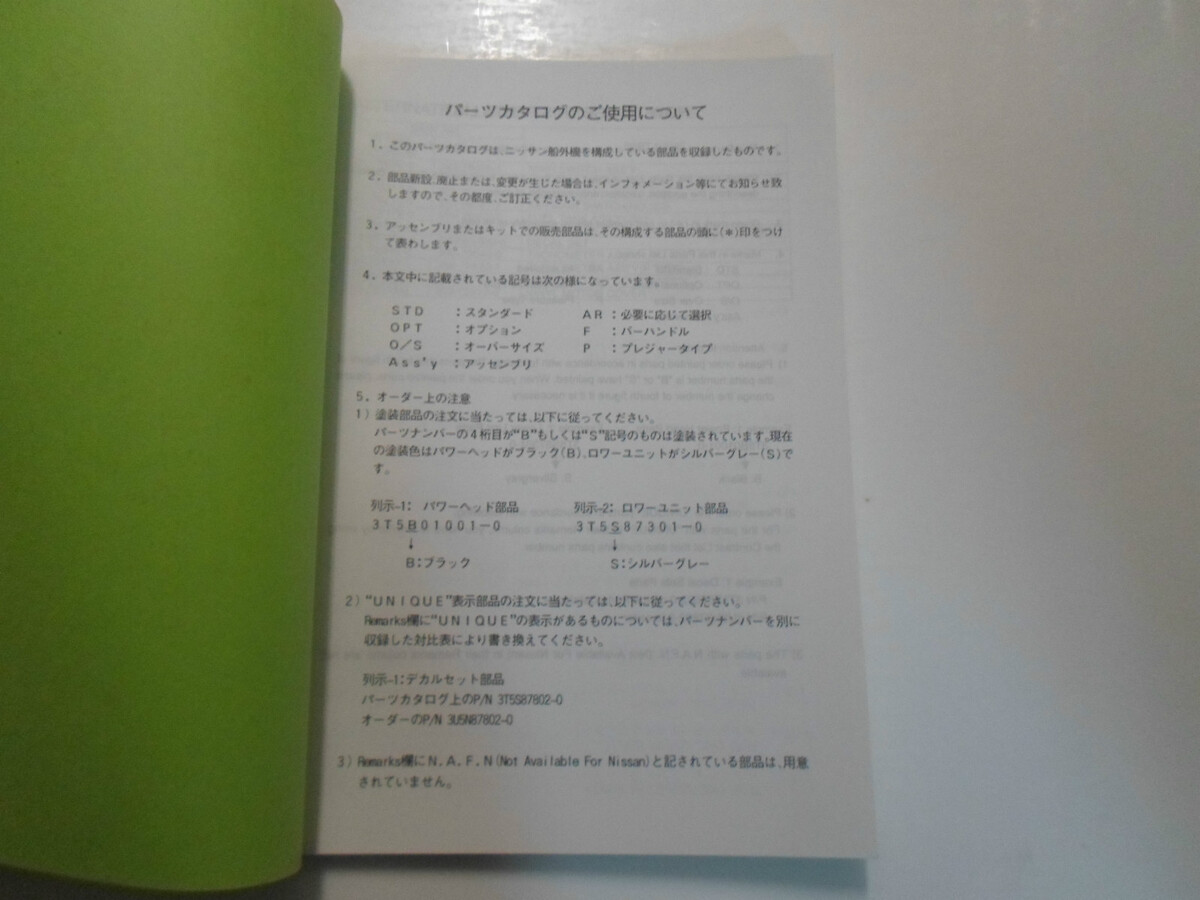 パーツカタログのご使用について
1．このパーツカタログは、ニッサン船外機を構成している部品を収録したものです。
2．部品新設、廃止または、変更が生じた場合は、インフォメーション等にてお知らせ致
しますので、その都度、ご訂正ください。
3．アッセンブリまたはキットでの販売部品は、その構成する部品の頭に(＊)印をつけ
て表わします。
4．本文中に記載されている記号は次の様になっています。
ＳＴＤ ：スタンダード ＡＲ：必要に応じて選択
ＯＰＴ ：オプション Ｆ ：バーハンドル
Ｏ／Ｓ ：オーバーサイズ Ｐ ：プレジャータイプ
Ａｓｓ'ｙ ：アッセンブリ
5．オーダー上の注意
1）塗装部品の注文に当たっては、以下に従ってください。
パーツナンバーの４桁目が"B"もしくは"S"記号のものは塗装されています。現在
の塗装色はパワーヘッドがブラック(B)、ロワーユニットがシルバーグレー(S)で
す。
列示-1： パワーヘッド部品 列示-2： ロワーユニット部品
３Ｔ５Ｂ０１００１－０ ３Ｔ５Ｓ８７３０１－０
↓ ↓
B：ブラック S：シルバーグレー
2）"ＵＮＩＱＵＥ"表示部品の注文に当たっては、以下に従ってください。
Remarks欄に"ＵＮＩＱＵＥ"の表示があるものについては、パーツナンバーを別に
収録した対比表により書き換えてください。
列示-1：デカルセット部品
パーツカタログ上のP/N 3T5S87802-0
オーダーのP/N 3U5N87802-0
3）Remarks欄にＮ．Ａ．Ｆ．Ｎ(Not Available For Nissan)と記されている部品は、用意
されていません。